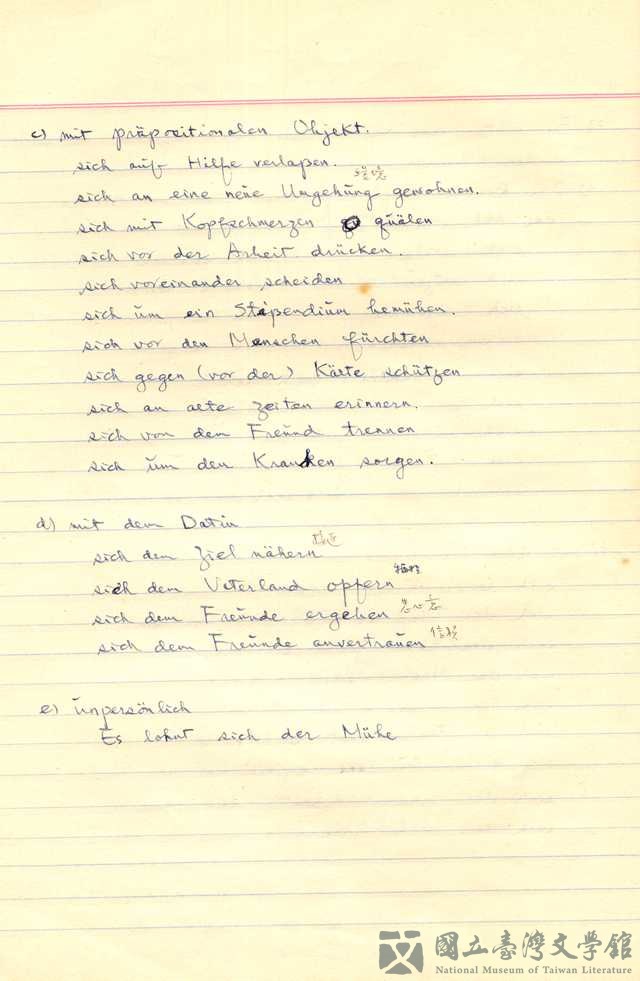 c) mit präpositionalen Objekt.
sich auf Hilfe verlaßen.
sich an eine neue Umgebung gewohnen.
sich mit Kopfschmerzen quälen
sich vor der Arbeit drücken.
sich voreinander scheiden
sich um ein Stipendium bemühen.
sich vor den Menschen fürchten
sich gegen (vor der) Kälte schützen
sich an alte Zeiten erinnern.
sich von dem Freund trennen
sich um den Kranken sorgen.
d) mit dem Dativ
sich dem Ziel nähern
sich dem Vaterland opfern 犧牲
sich dem Freunde ergeben
sich dem Freunde anvertrauen 信賴
e) unpersönlich
Es lohnt sich der Mühe
國立臺灣文學館
National Museum of Taiwan Literature